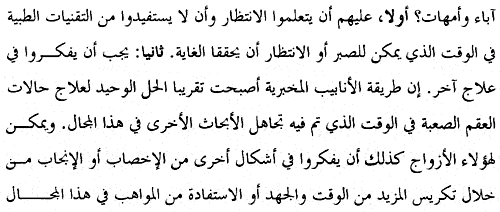 آباء وأمهات؟ أولا، عليهم أن يتعلموا الانتظار وأن لا يستفيدوا من التقنيات الطبية
في الوقت الذي يمكن للصبر أو الانتظار أن يحققا الغاية. ثانيا: يجب أن يفكروا في
علاج آخر. إن طريقة الأنابيب المخبرية أصبحت تقريبا الحل الوحيد لعلاج حالات
العقم الصعبة في الوقت الذي تم فيه تجاهل الأبحاث الأخرى في هذا المجال. ويمكن
لهؤلاء الأزواج كذلك أن يفكروا في أشكال أخرى من الإخصاب أو الإنجاب من
خلال تكريس المزيد من الوقت والجهد أو الاستفادة من المواهب في هذا المجال